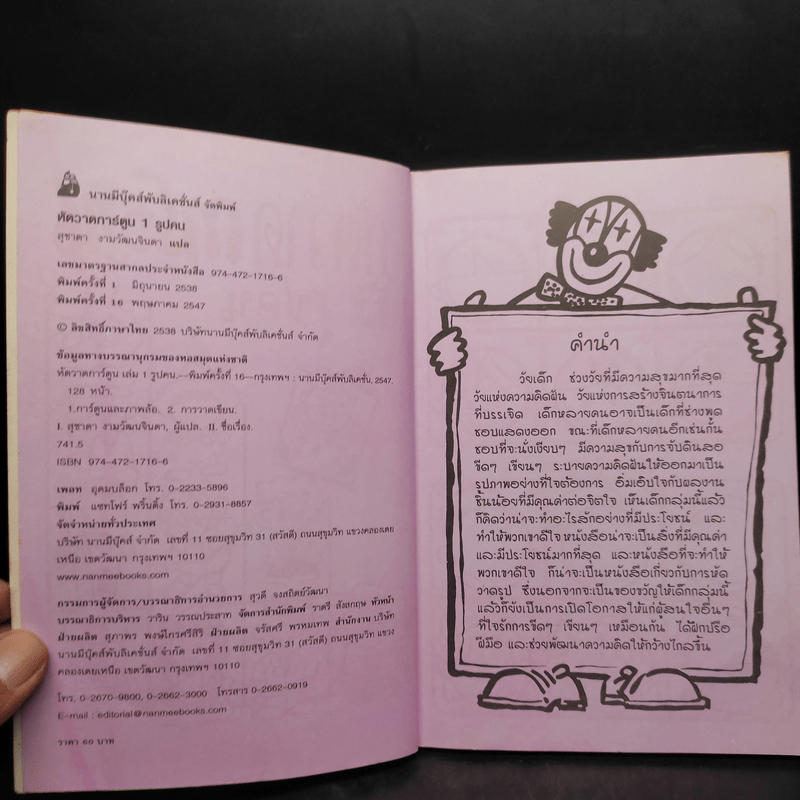 นานมีบุ๊คส์พับลิเคชั่นส์ จัดพิมพ์
หัดวาดการ์ตูน 1 รูปคน
สุชาดา งามวัฒนจินดา แปล
เลขมาตรฐานสากลประจำหนังสือ 974-472-1716-6
พิมพ์ครั้งที่ 1 มิถุนายน 2538
พิมพ์ครั้งที่ 16 พฤษภาคม 2547
© ลิขสิทธิ์ภาษาไทย 2538 บริษัทนานมีบุ๊คส์พับลิเคชั่นส์ จำกัด
ข้อมูลทางบรรณานุกรมของหอสมุดแห่งชาติ
หัดวาดการ์ตูน เล่ม 1 รูปคน.--พิมพ์ครั้งที่ 16--กรุงเทพฯ : นานมีบุ๊คส์พับลิเคชั่น, 2547.
128 หน้า.
1.การ์ตูนและภาพล้อ. 2. การวาดเขียน.
I. สุชาดา งามวัฒนจินดา, ผู้แปล. II. ชื่อเรื่อง.
741.5
ISBN 974-472-1716-6
เพลท อุดมบล็อก โทร. 0-2233-5896
พิมพ์ แซทโฟร์ พริ้นติ้ง โทร. 0-2931-8857
จัดจำหน่ายทั่วประเทศ
บริษัท นานมีบุ๊คส์ จำกัด เลขที่ 11 ซอยสุขุมวิท 31 (สวัสดี) ถนนสุขุมวิท แขวงคลองเตย
เหนือ เขตวัฒนา กรุงเทพฯ 10110
www.nanmeebooks.com
กรรมการผู้จัดการ/บรรณาธิการอำนวยการ สุวดี จงสถิตย์วัฒนา
บรรณาธิการบริหาร วาริน วรรณประสาท จัดการสำนักพิมพ์ ราตรี สังสกฤษ หัวหน้า
ฝ่ายผลิต สุภาพร พงษ์ไกรศรีสิริ ฝ่ายผลิต จรัสศรี พรหมเทพ สำนักงาน บริษัท
นานมีบุ๊คส์พับลิเคชั่นส์ จำกัด เลขที่ 11 ซอยสุขุมวิท 31 (สวัสดี) ถนนสุขุมวิท แขวง
คลองเตยเหนือ เขตวัฒนา กรุงเทพฯ 10110
โทร. 0-2670-9800, 0-2662-3000 โทรสาร 0-2662-0919
E-mail : editorial@nanmeebooks.com
ราคา ๖๐ บาท
คำนำ
วัยเด็ก ช่วงวัยที่มีความสุขมากที่สุด
วัยแห่งความคิดฝัน วัยแห่งการสร้างจินตนาการ
ที่บรรเจิด เด็กหลายคนอาจเป็นเด็กที่ช่างพูด
ชอบแสดงออก ขณะที่เด็กหลายคนอีกเช่นกัน
ชอบที่จะนั่งเงียบๆ มีความสุขกับการจับดินสอ
ขีดๆ เขียนๆ ระบายความคิดฝันให้ออกมาเป็น
รูปภาพอย่างที่ใจต้องการ อิ่มเอิบใจกับผลงาน
ชิ้นน้อยที่มีคุณค่าต่อจิตใจ เห็นเด็กกลุ่มนี้แล้ว
ก็คิดว่าน่าจะทำอะไรสักอย่างที่มีประโยชน์ และ
ทำให้พวกเขาดีใจ หนังสือน่าจะเป็นสิ่งที่มีคุณค่า
และมีประโยชน์มากที่สุด และหนังสือที่จะทำให้
พวกเขาดีใจ ก็น่าจะเป็นหนังสือเกี่ยวกับการหัด
วาดรูป ซึ่งนอกจากจะเป็นของขวัญให้เด็กกลุ่มนี้
แล้วก็ยังเป็นการเปิดโอกาสให้แก่ผู้สนใจอื่นๆ
ที่ใจรักการขีดๆ เขียนๆ เหมือนกัน ได้ฝึกปรือ
ฝีมือ และช่วยพัฒนาความคิดให้กว้างไกลขึ้น